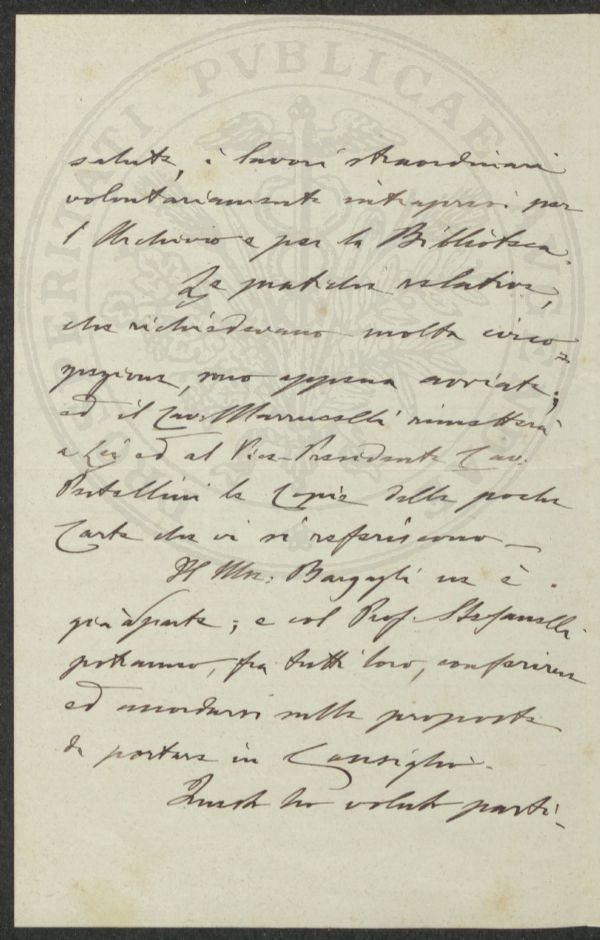 salute, i lavori straordinari
volontariamente intrapresi per
l'Archivio e per la Biblioteca.
Le pratiche relative,
che richiedevano molta circo=
spezione, sono appena avviate;
ed il Cav: Marrucelli rimetterà
a Lei ed al Vice-Presidente Cav:
le Copie delle poche
Carte che vi si riferiscono_
Il Mse: Bargagli ne è
già a parte; e col Prof. Stefanelli
potranno, fra tutti loro, conferirne
ed accordarsi sulle proposte
da portare in Consiglio.
Questo ho voluto parti_
PVBLICAE